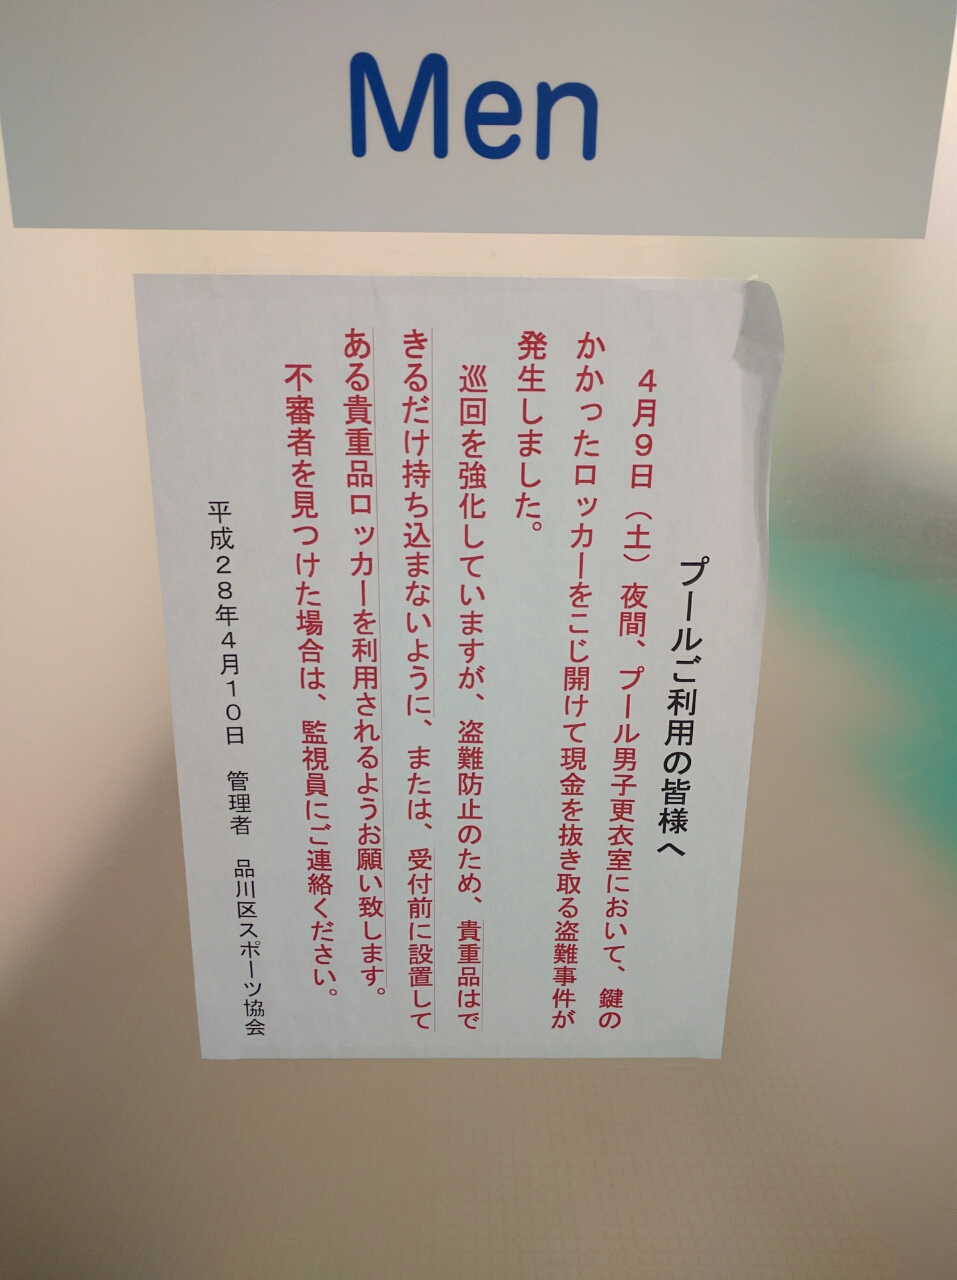 Men
プールご利用の皆様へ
４月９日（土）夜間、プール男子更衣室において、鍵の
かかったロッカーをこじ開けて現金を抜き取る盗難事件が
発生しました。
巡回を強化していますが、盗難防止のため、貴重品はで
きるだけ持ち込まないように、または、受付前に設置して
ある貴重品ロッカーを利用されるようお願い致します。
不審者を見つけた場合は、監視員にご連絡ください。
平成２８年４月１０日　管理者　品川区スポーツ協会